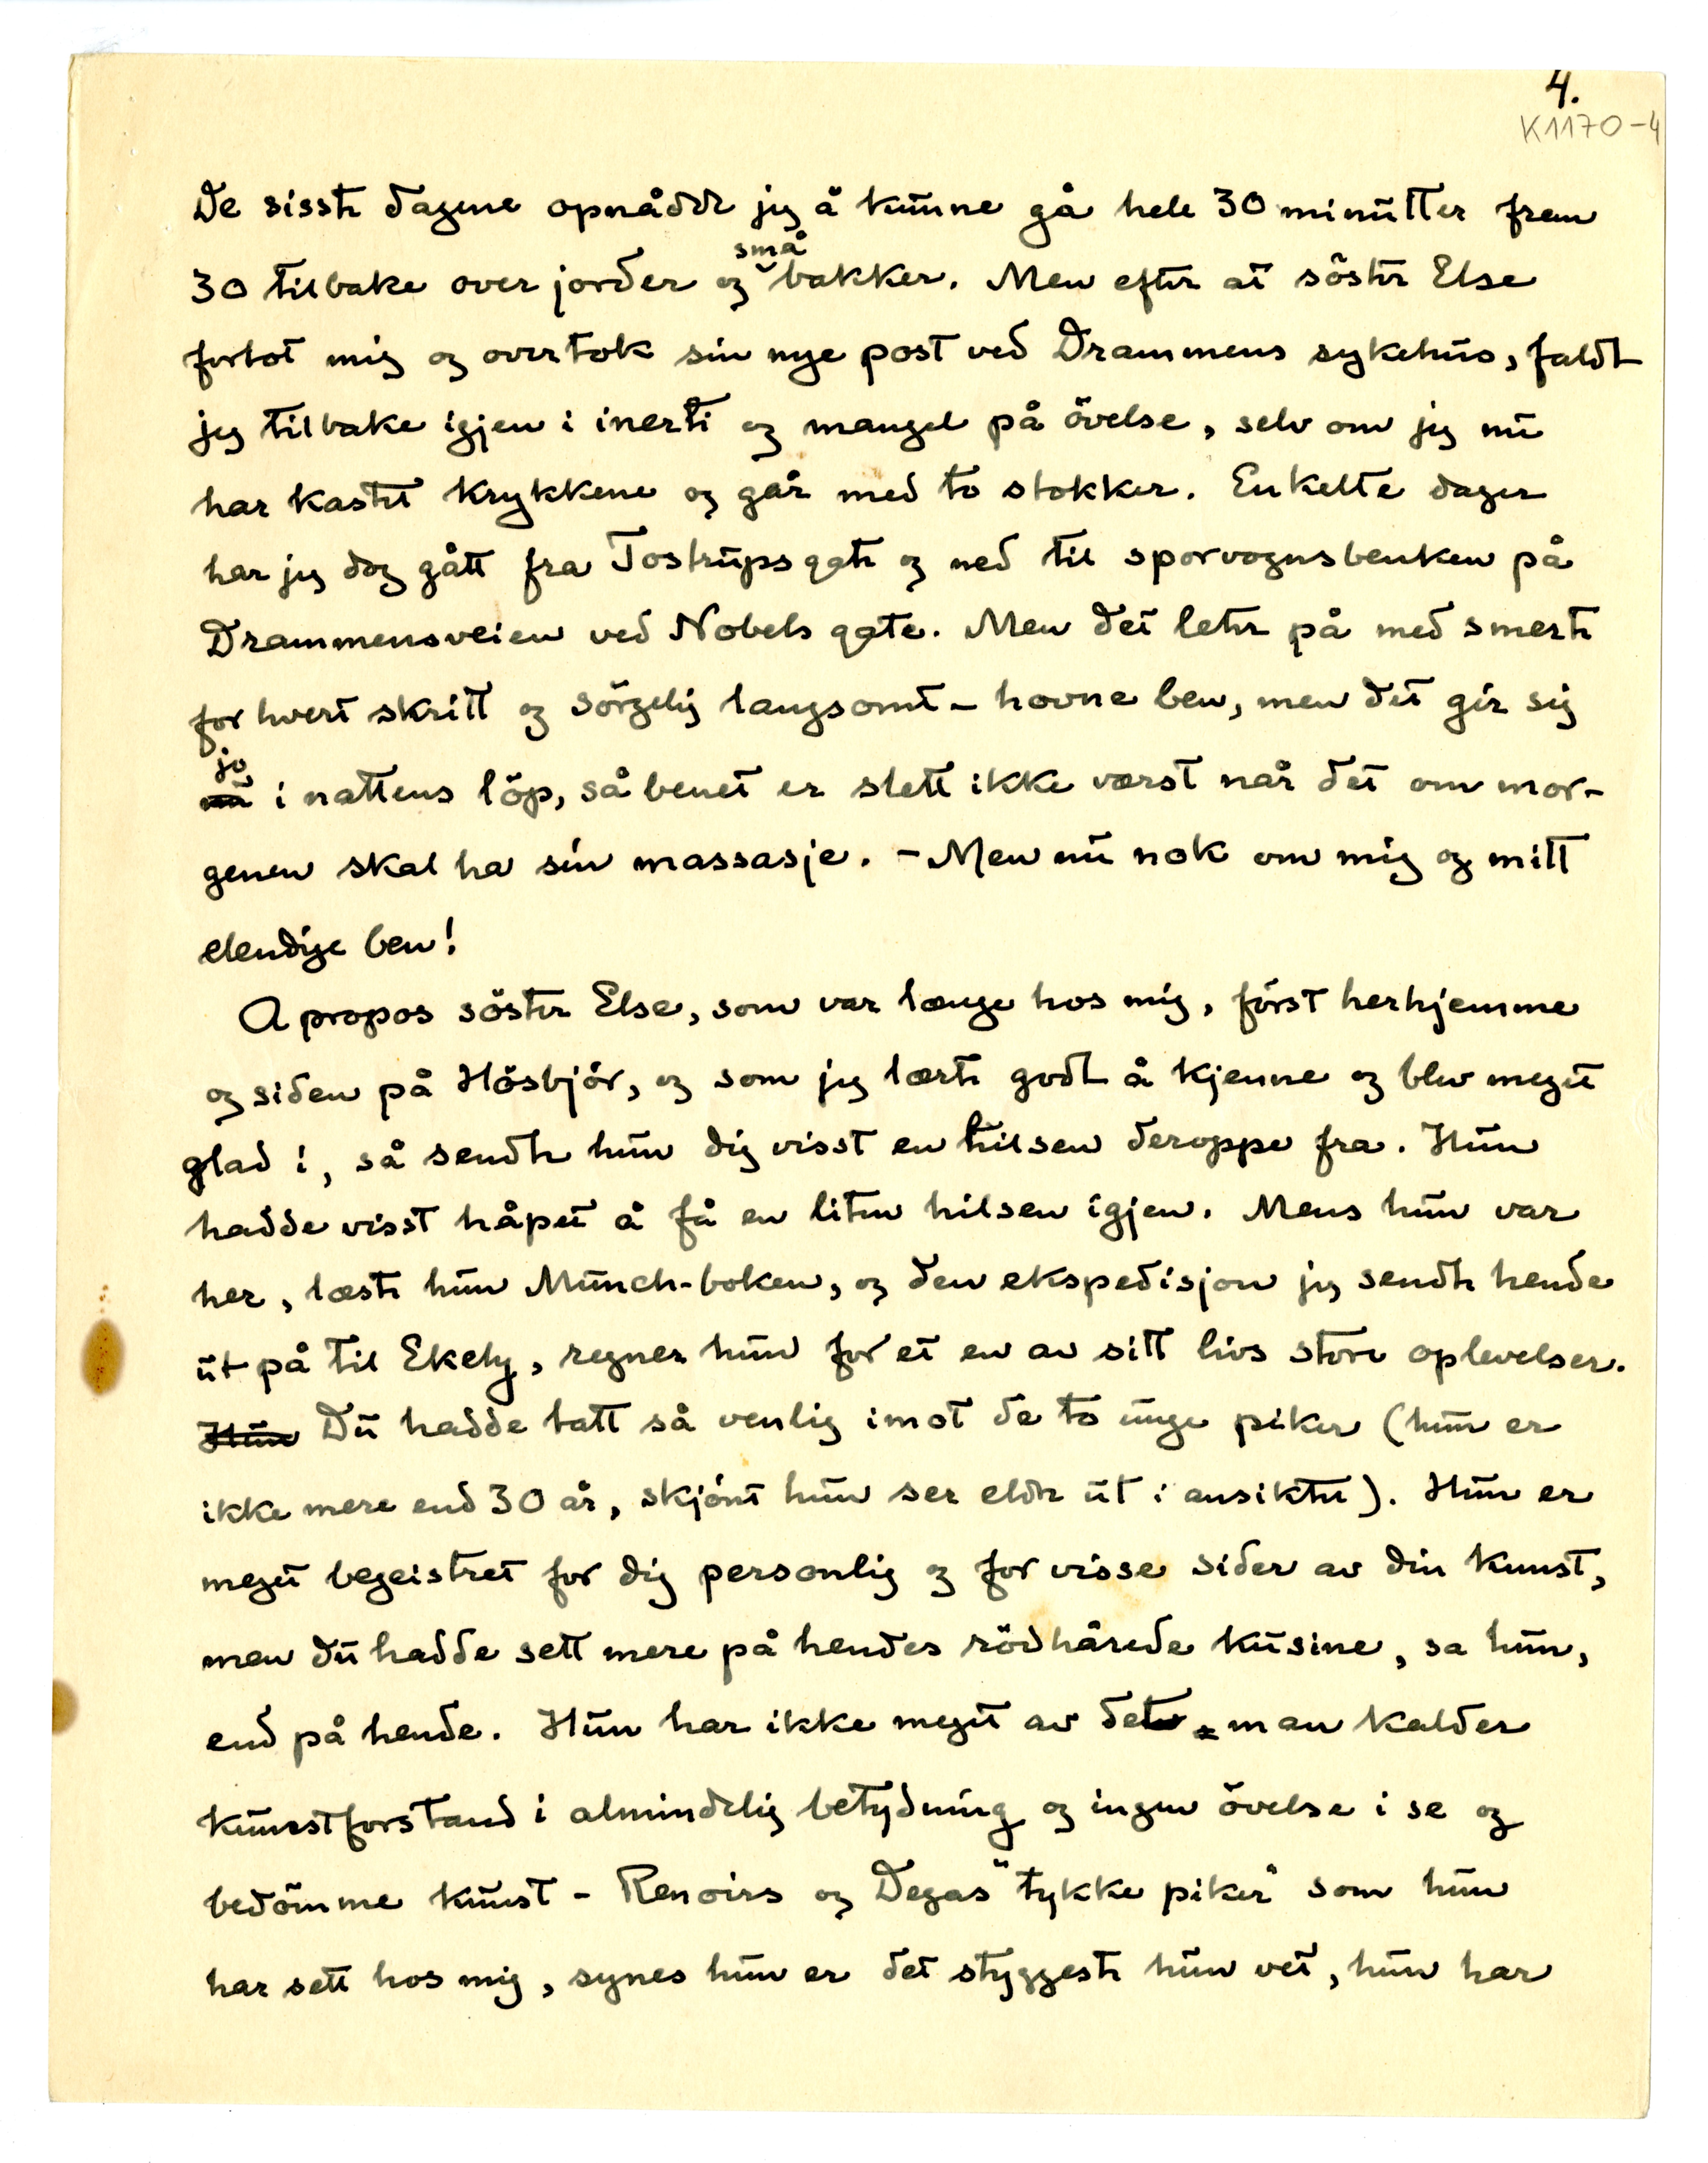 4.
K1170-4
De sisste dagene opnådde jeg å kunne gå hele 30 minutter frem
små
30 tilbake over jorder og bakker. Men efter at söster Else
forlot mig og overtok sin nye post ved Drammens sykehus, faldt
jeg tilbake igjen i inerti og mangel på övelse, selv om jeg nu
har kastet krykkene og går med to stokker. Enkelte dager
har jeg dog gått fra Tostrupsgate og ned til sporvognsbenken på
Drammensveien ved Nobels gate. Men det leter på med smerte
for hvert skritt og sörgelig langsomt - hovne ben, men det gir sig
jo
nu i nattens löp, så benet er slett ikke værst når det om mor-
genen skal ha sin massasje. - Men nu nok om mig og mitt
elendige ben!
Apropos söster Else, som var længe hos mig, först herhjemme
og siden på Hösbjör, og som jeg lærte godt å kjenne og blev meget
glad i, så sendte hun dig visst en hilsen deroppe fra. Hun
hadde visst håpet å få en liten hilsen igjen. Mens hun var
her, læste hun Munch-boken, og den ekspedisjon jeg sendte hende
ut på til Ekely, regner hun for et en av sitt livs store oplevelser.
Hun Du hadde tatt så venlig imot de to unge piker (hun er
ikke mere end 30 år, skjönt hun ser eldre ut i ansiktet). Hun er
meget begeistret for dig personlig og for visse sider av din kunst,
men du hadde sett mere på hendes rödhårede kusine, sa hun,
end på hende. Hun har ikke meget av det man kalder
kunstforstand i almindelig betydning og ingen övelse i se og
bedömme kunst - Renoirs og Degas "tykke piker" som hun
har sett hos mig, synes hun er det styggeste hun vet, hun har